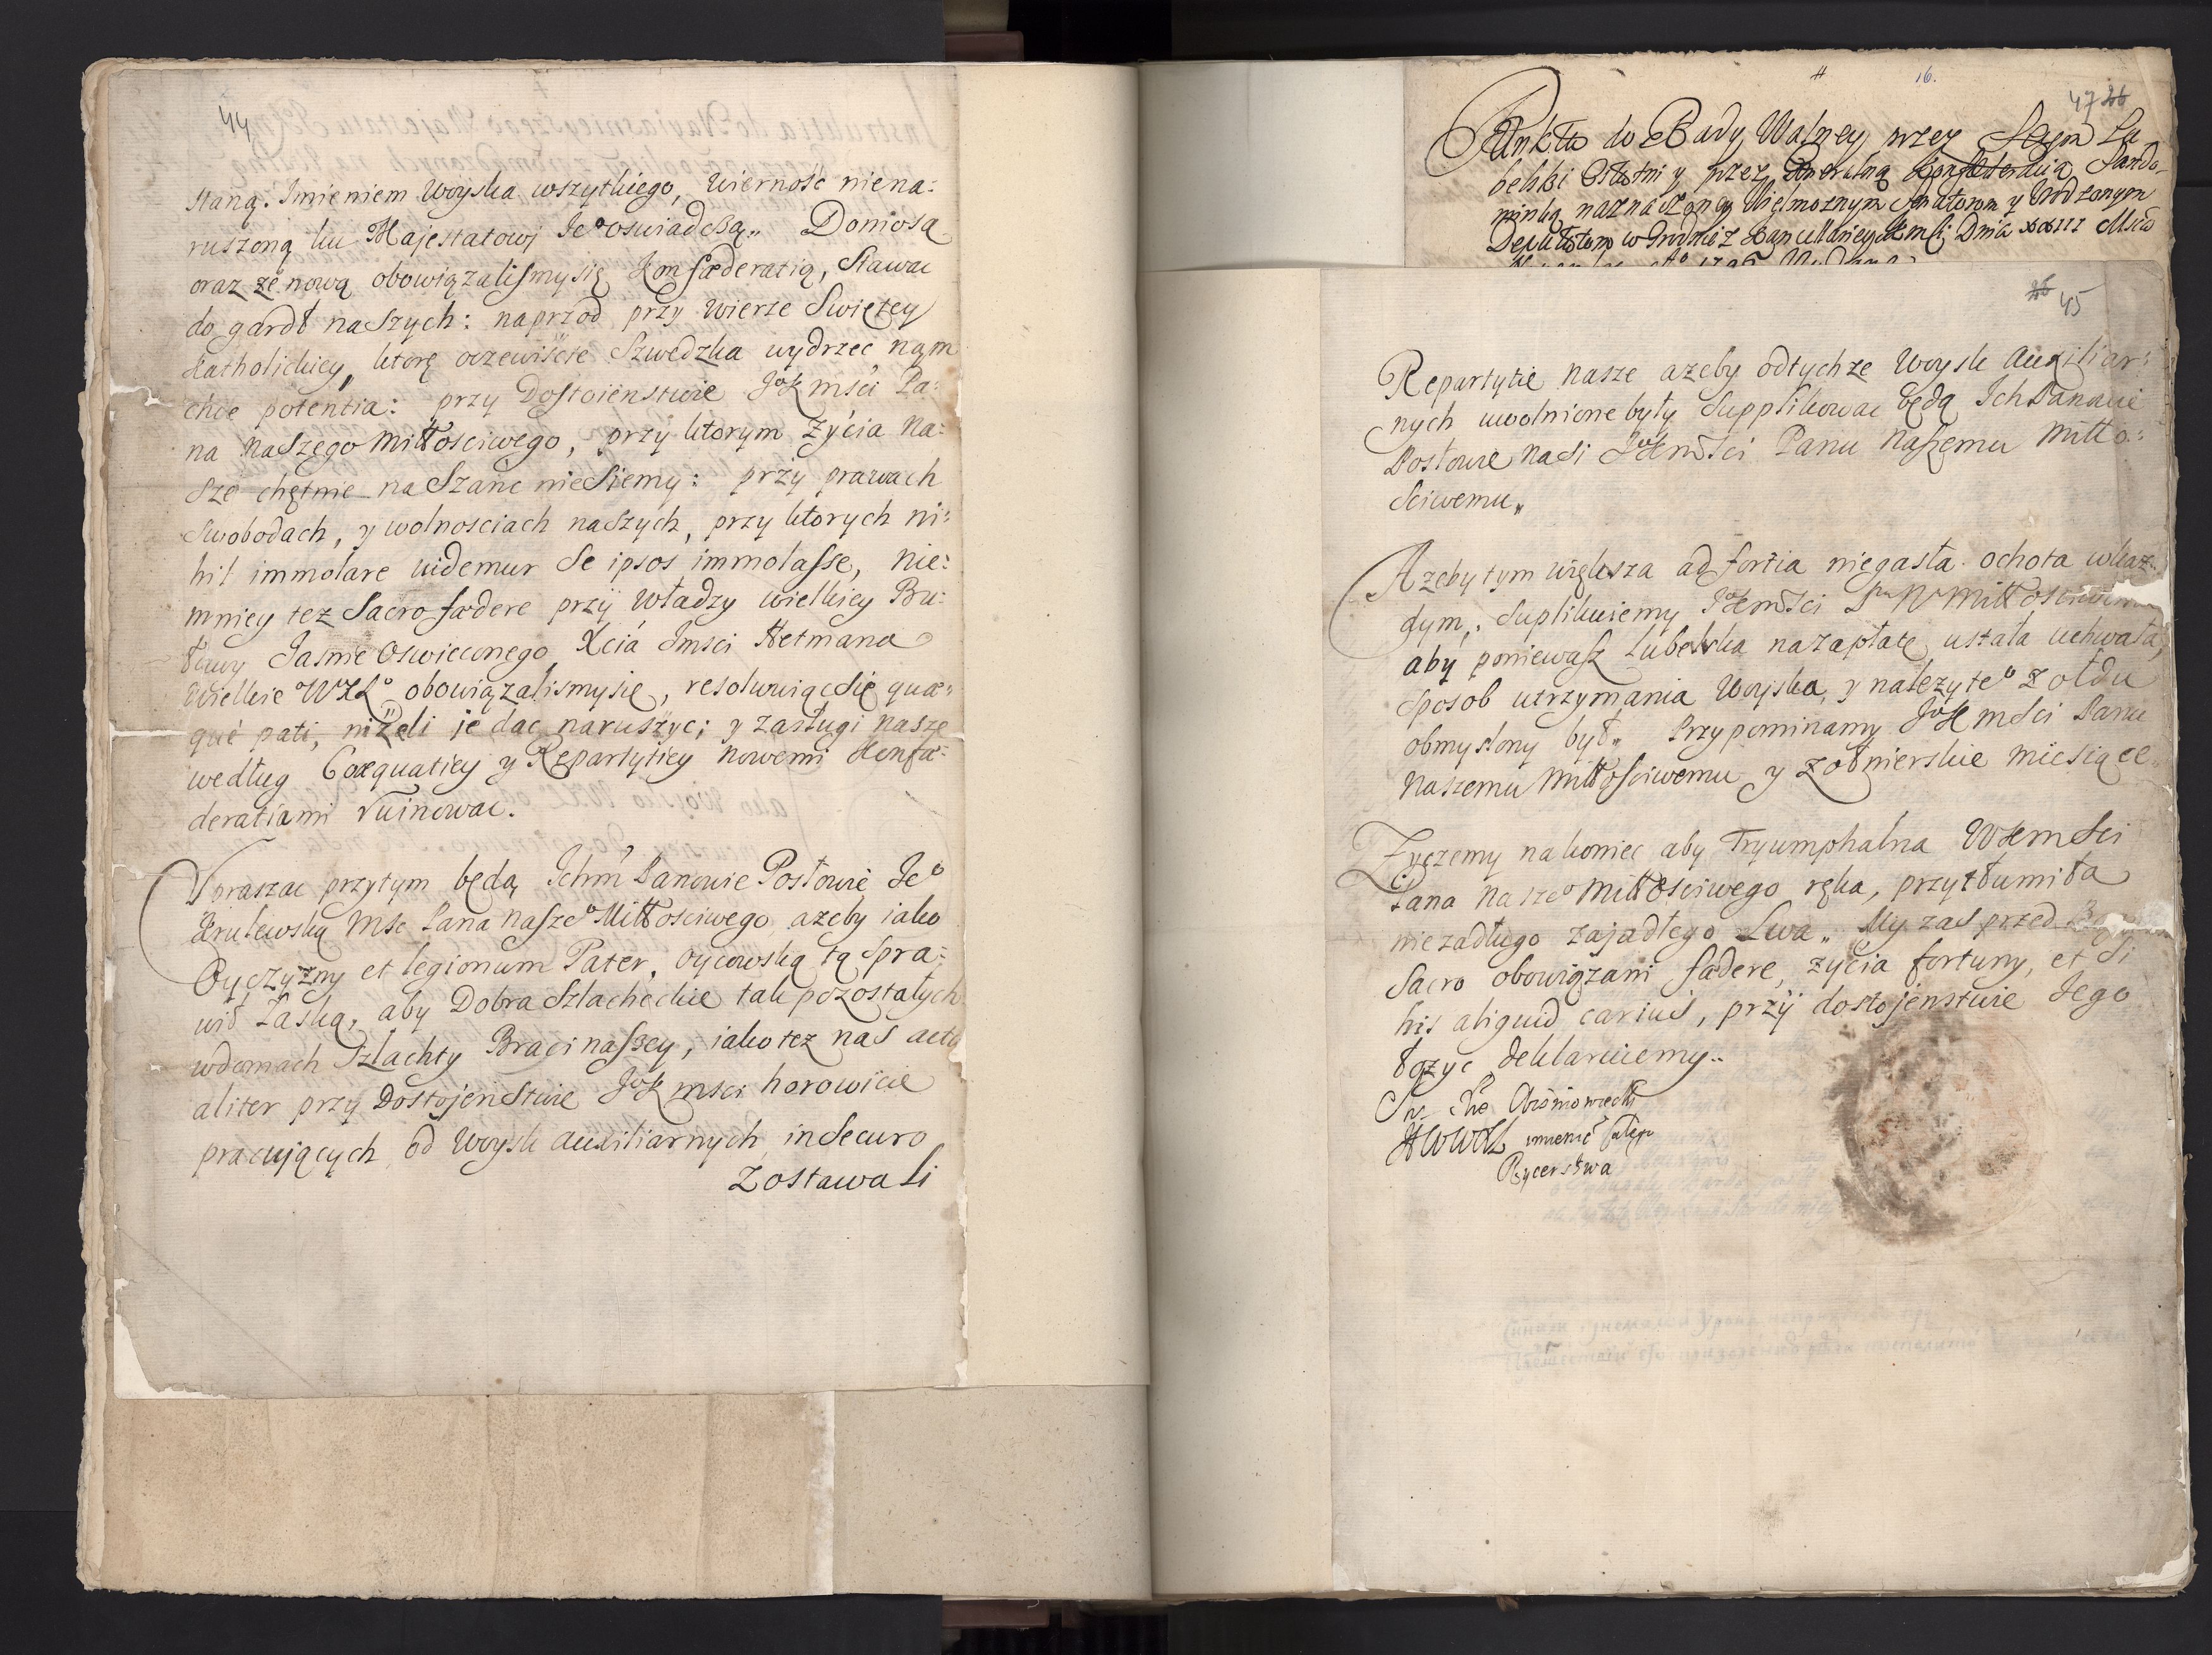 44
staną. Imieniem Woyska wszytkiego, wierność niena:
ruszoną ku Majestatowj Je° oswiadcżą,, Doniosą
oraz że nową obowiązalismysię Konfæderatią, stawac
do gardł naszych: naprzod przy wierze Swiętey
Katholickiey, ktorę oczewiście Szwedzka wydrzec nąm
chce potentia: przy Dostoienstwie JoK mści Pa:
na Naszego Miłłosciwego, przy ktorym Życia Na:
sze chętnie na szanc niesiemy: przy prawach
Swobodach, y wolnosciach naszych, przy ktorych ni:
hil immolare videmur se ipsos immolasse, nie:
mniey tez sacro fœdere przÿ Władzy wielkiey Bu:
ławy Jasnie Oswieconego Xcia Jmsci Hetmana
Wielkie° WXL° obowiązalismysię, resolwuiącsię quæ:
que pati, niżeli je dac naruszyc; y zasługi nasze
według Coæquatiey y Repartytiey nowemi Konfæ:
deratiami ruinowac.
Vpraszac przytym będą Ichm Panowie Posłowie Je°
Krulewską Msc Pana Nasze° Miłłosciwego ażeby iako
Oyczyzny et legionum Pater, oycowską tą spra:
wił Łaską, aby Dobra Szlacheckie tak pozostałych
wdomach Szlachty Braci naszey, iako tez nas actu
aliter przy Dostojenstwie JoK msci horowicie
pracujących od Woysk auxiliarnych in securo
zostawali
16.
47 26
Punkta do Rady Walney przez Seym Lu
belski Ostatni y przez Generalną Konfæderacią Sando
mirską naznaczoney Wielmożnym Senatorom y Urodzonym
Deputatom w Grodnie z Kancellariey JKMsci Dnia XXIII Msca
26 45
Repartytie nasze ażeby odtychże Woysk Auxiliar:
nych uwolnione były supplikowac będą Ich Panowie
Posłowie nasi JoKmsci Panu Naszemu Miłło:
sciwemu,,
Ażeby tym większa ad fortia niegasła ochota wkaż:
dym,: suplikuiemy JoKmsci Pu N Miłłosciwemu
aby ponieważ Lubelska nazapłatę ustała uchwała,
sposob utrzymania Woyska, y należyte° żołdu
obmyslony był,, Przypominamy JoK msci Panu
Naszemu Miłłosciwemu y żołnierskie miesiące
Życzemy nakoniec aby Tryumphalna WKmsci
Pana Nasze° Miłłosciwego ręka, przytłumiła
niezadługo zajadłego Lwa,, My zas przed
Sacro obowiązani fœdere, życia fortuny, et si
his aliquid carius, przÿ dostojenstwie Jego
łożyc deklaruiemy..
HWWXL imieniem całego
Rycerstwa